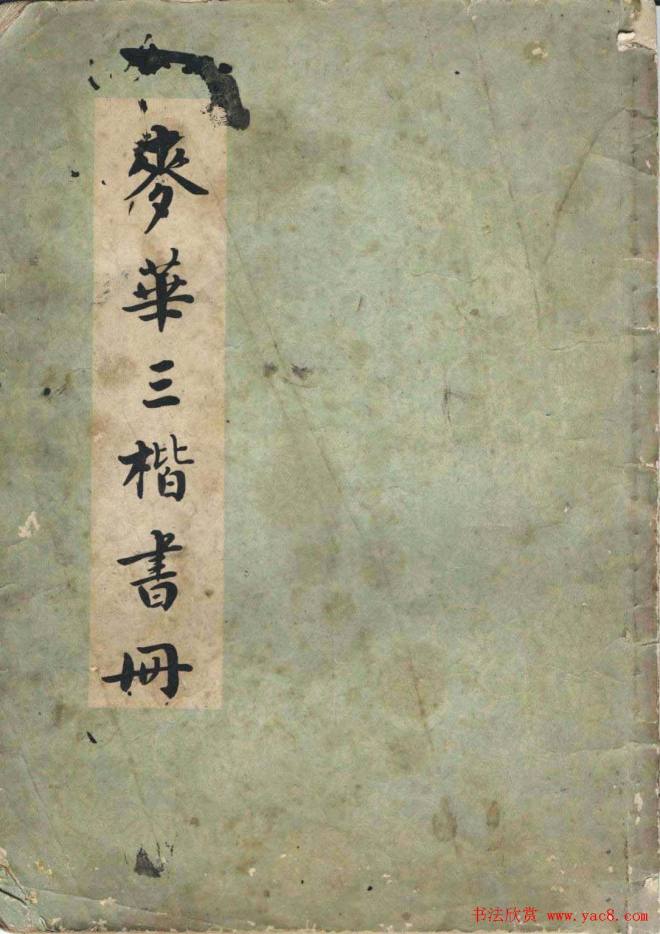 麥華三楷書冊
书法欣赏 www.yac8.com